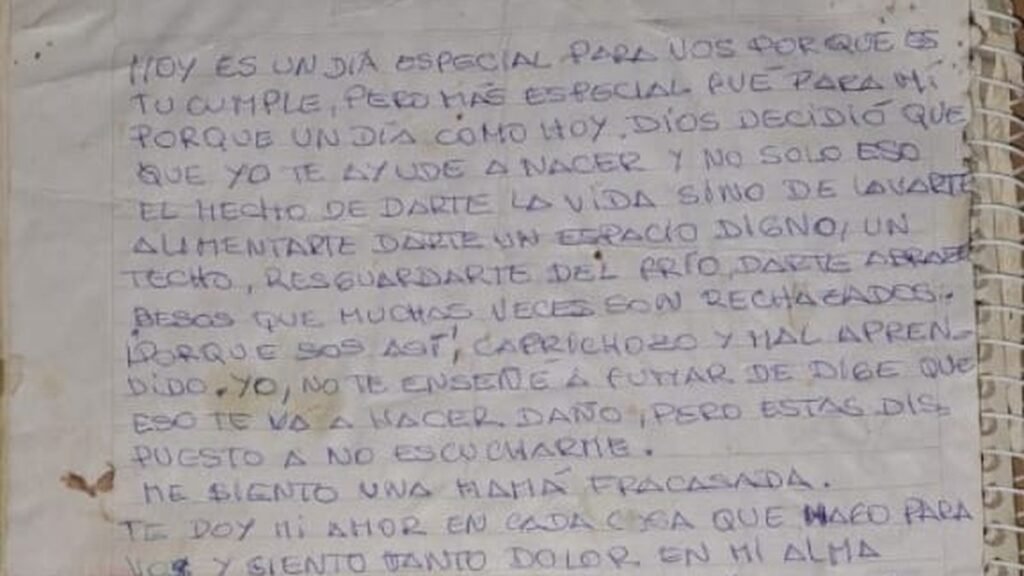 HOY ES UN DÍA ESPECIAL PARA VOS PORQUE ES
TU CUMPLE, PERO MÁS ESPECIAL FUÉ PARA MÍ
PORQUE UN DÍA COMO HOY, DÍOS DECIDIÓ QUE
QUE YO TE AYUDE A NACER Y NO SOLO ESO
EL HECHO DE DARTE LA VIDA SINO DE LAVARTE
ALIMENTARTE DARTE UN ESPACIO DIGNO, UN
TECHO, RESGUARDARTE DEL FRÍO, DARTE
BESOS QUE MUCHAS VECES SON RECHAZADOS.
¡PORQUE SOS ASÍ!, CAPRICHOZO Y MAL APREN-
DIDO. YO, NO TE ENSEÑÉ A FUMAR DE DIGE QUE
ESO TE VA A HACER DAÑO, PERO ESTAS DIS-
PUESTO A NO ESCUCHARME.
ME SIENTO UNA MAMÁ FRACASADA.
TE DOY MI AMOR EN CADA COSA QUE HAGO PARA
VOS Y SIENTO TANTO DOLOR EN MI ALMA